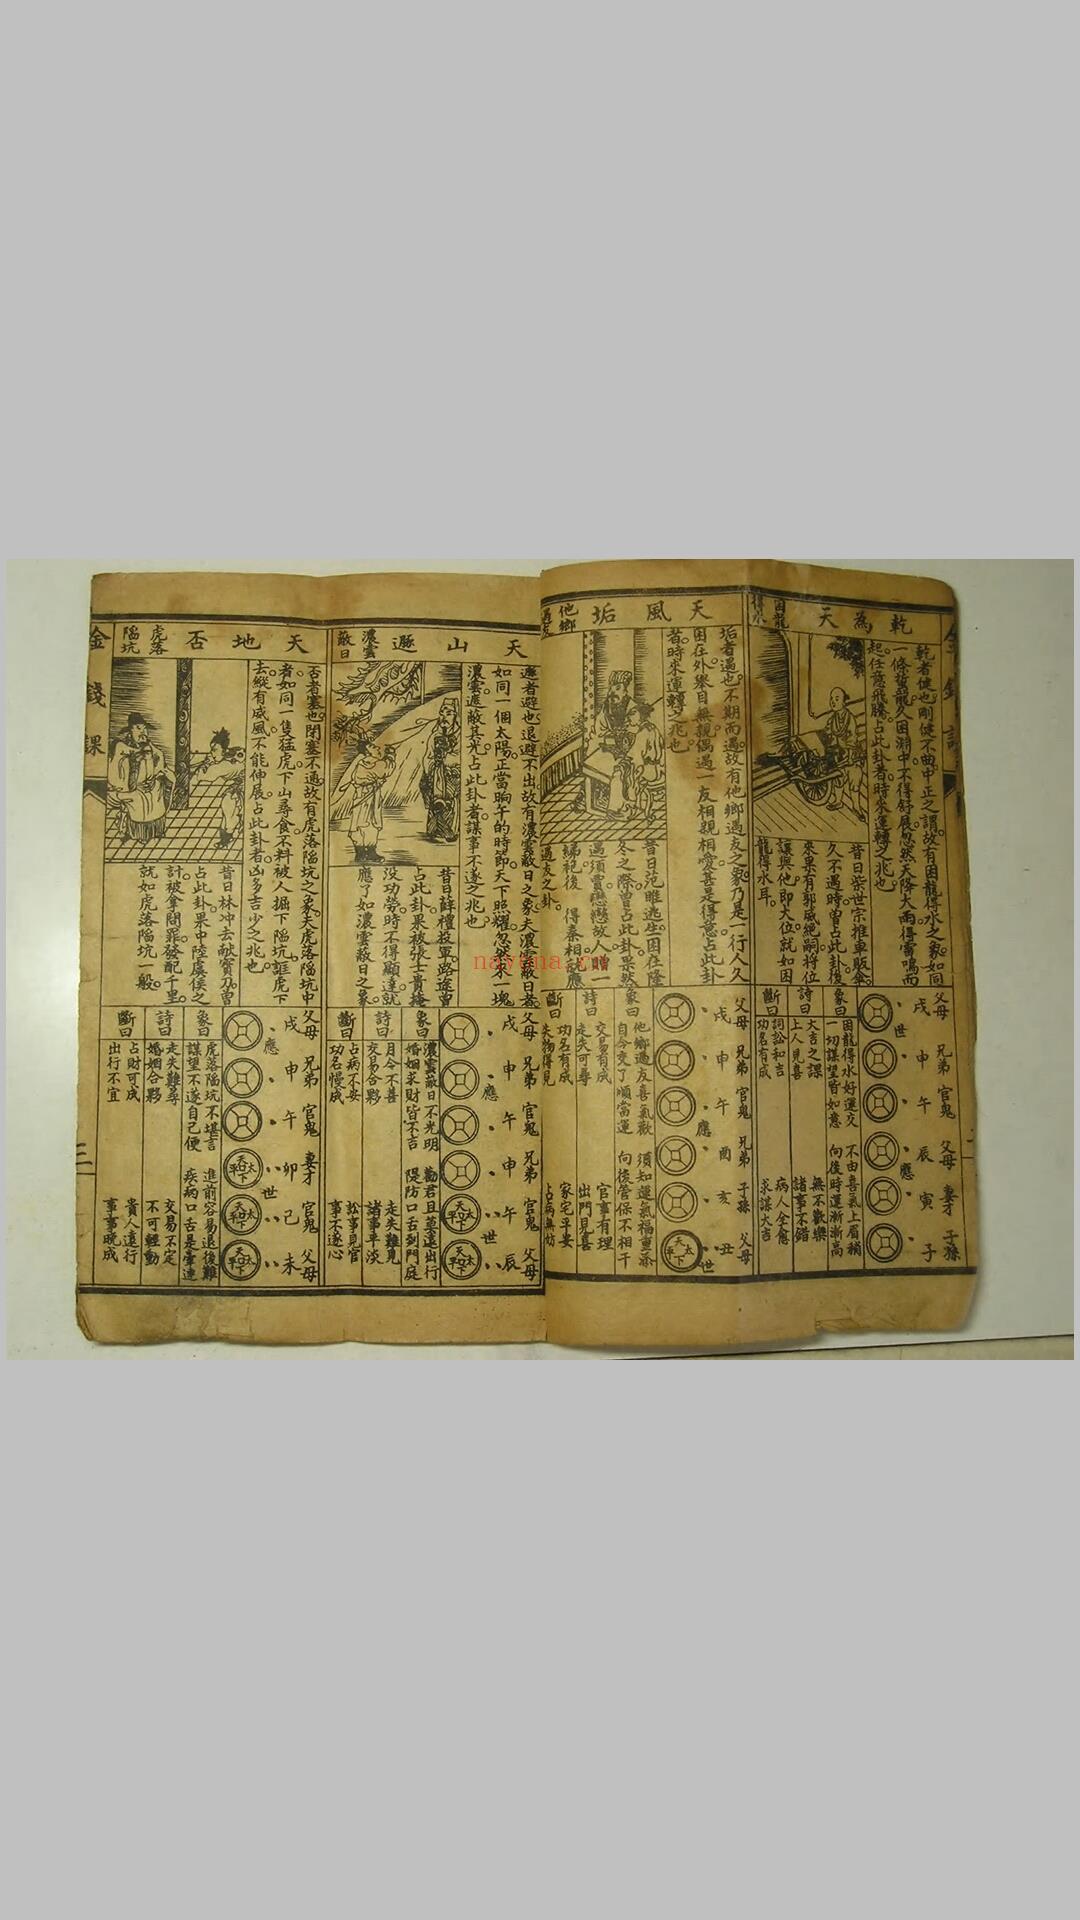 乾為天
困龍得水
乾者健也剛健不曲中正之謂故有困龍得水之象如同
一條蟄龍久困淵中不得舒展忽然天降大雨得雷鳴而
起任意飛騰占此卦者時來運轉之兆也
昔日柴世宗推車販傘
久不遇時曾占此卦後
來果有郭威絕嗣將位
讓與他即大位就如困
龍得水耳
父母 戌 世
兄弟 申
官鬼 午
父母 辰 應
妻才 寅
子孫 子
象曰
困龍得水好運交 不由喜氣上眉稍
一切謀望皆如意 向後時運漸漸高
詩曰
大吉之課 無不歡樂
上人見喜 諸事不錯
斷曰
詞訟和吉 病人全愈
功名有成 求謀大吉
天風垢
他鄉遇友
垢者遇也不期而遇故有他鄉遇友之象乃是一行人久
困在外舉目無親偶遇一友相親相愛甚是得意占此卦
者時來運轉之兆也
昔日范睢逃生困在隆
冬之際曾占此卦果然
遇須賈戀戀故人贈一
綈袍後 得秦相故應
遇友之卦
父母 戌
兄弟 申
官鬼 午 應
兄弟 酉
子孫 亥
父母 丑 世
天下太平
象曰
他鄉遇友喜氣歡 須知運氣福重添
自今交了順當運 向後管保不相干
詩曰
交易有成 官事有理
走失可尋 出門見喜
斷曰
功名有成 家宅平安
失物得見 占病無妨
天山遯
濃雲蔽日
遯者避也退避不出故有濃雲蔽日之象夫濃雲蔽日者
如同一個太陽正當晌午的時節天下照耀忽然來一塊
濃雲遮蔽其光占此卦者謀事不遂之兆也
昔日薛禮投軍路途曾
占此卦果被張士貴掩
沒功勞時不得顯達就
應了如濃雲蔽日之象
父母 戌
兄弟 申 應
官鬼 午
兄弟 申
官鬼 午 世
父母 辰
天下太平
天下太平
象曰
濃雲蔽日不光明 勸君且莫遠出行
婚姻求財皆不吉 隄防口舌到門庭
詩曰
月令不喜 走失難見
交易合夥 諸事平淡
斷曰
占病不安 訟事見官
功名慢成 事不遂心
天地否
虎落陷坑
否者塞也閉塞不通故有虎落陷坑之象夫虎落陷坑中
者如同一隻猛虎下山尋食不料被人掘下陷坑誆虎下
去縱有威風不能伸展占此卦者凶多吉少之兆也
昔日林冲去献寶刀曾
占此卦果中陸虞侯之
計被拿問罪發配千里
就如虎落陷坑一般
父母 戌 應
兄弟 申
官鬼 午
妻才 卯 世
官鬼 己
父母 未
天下太平
天下太平
天下太平
象曰
虎落陷坑不堪言 進前容易退後難
謀望不遂自己便 疾病口舌是牽連
詩曰
走失難尋 交易不定
婚姻合夥 不可輕動
斷曰
占財可成 貴人遠行
出行不宜 事事晚成
金錢課
三
nayona.cn